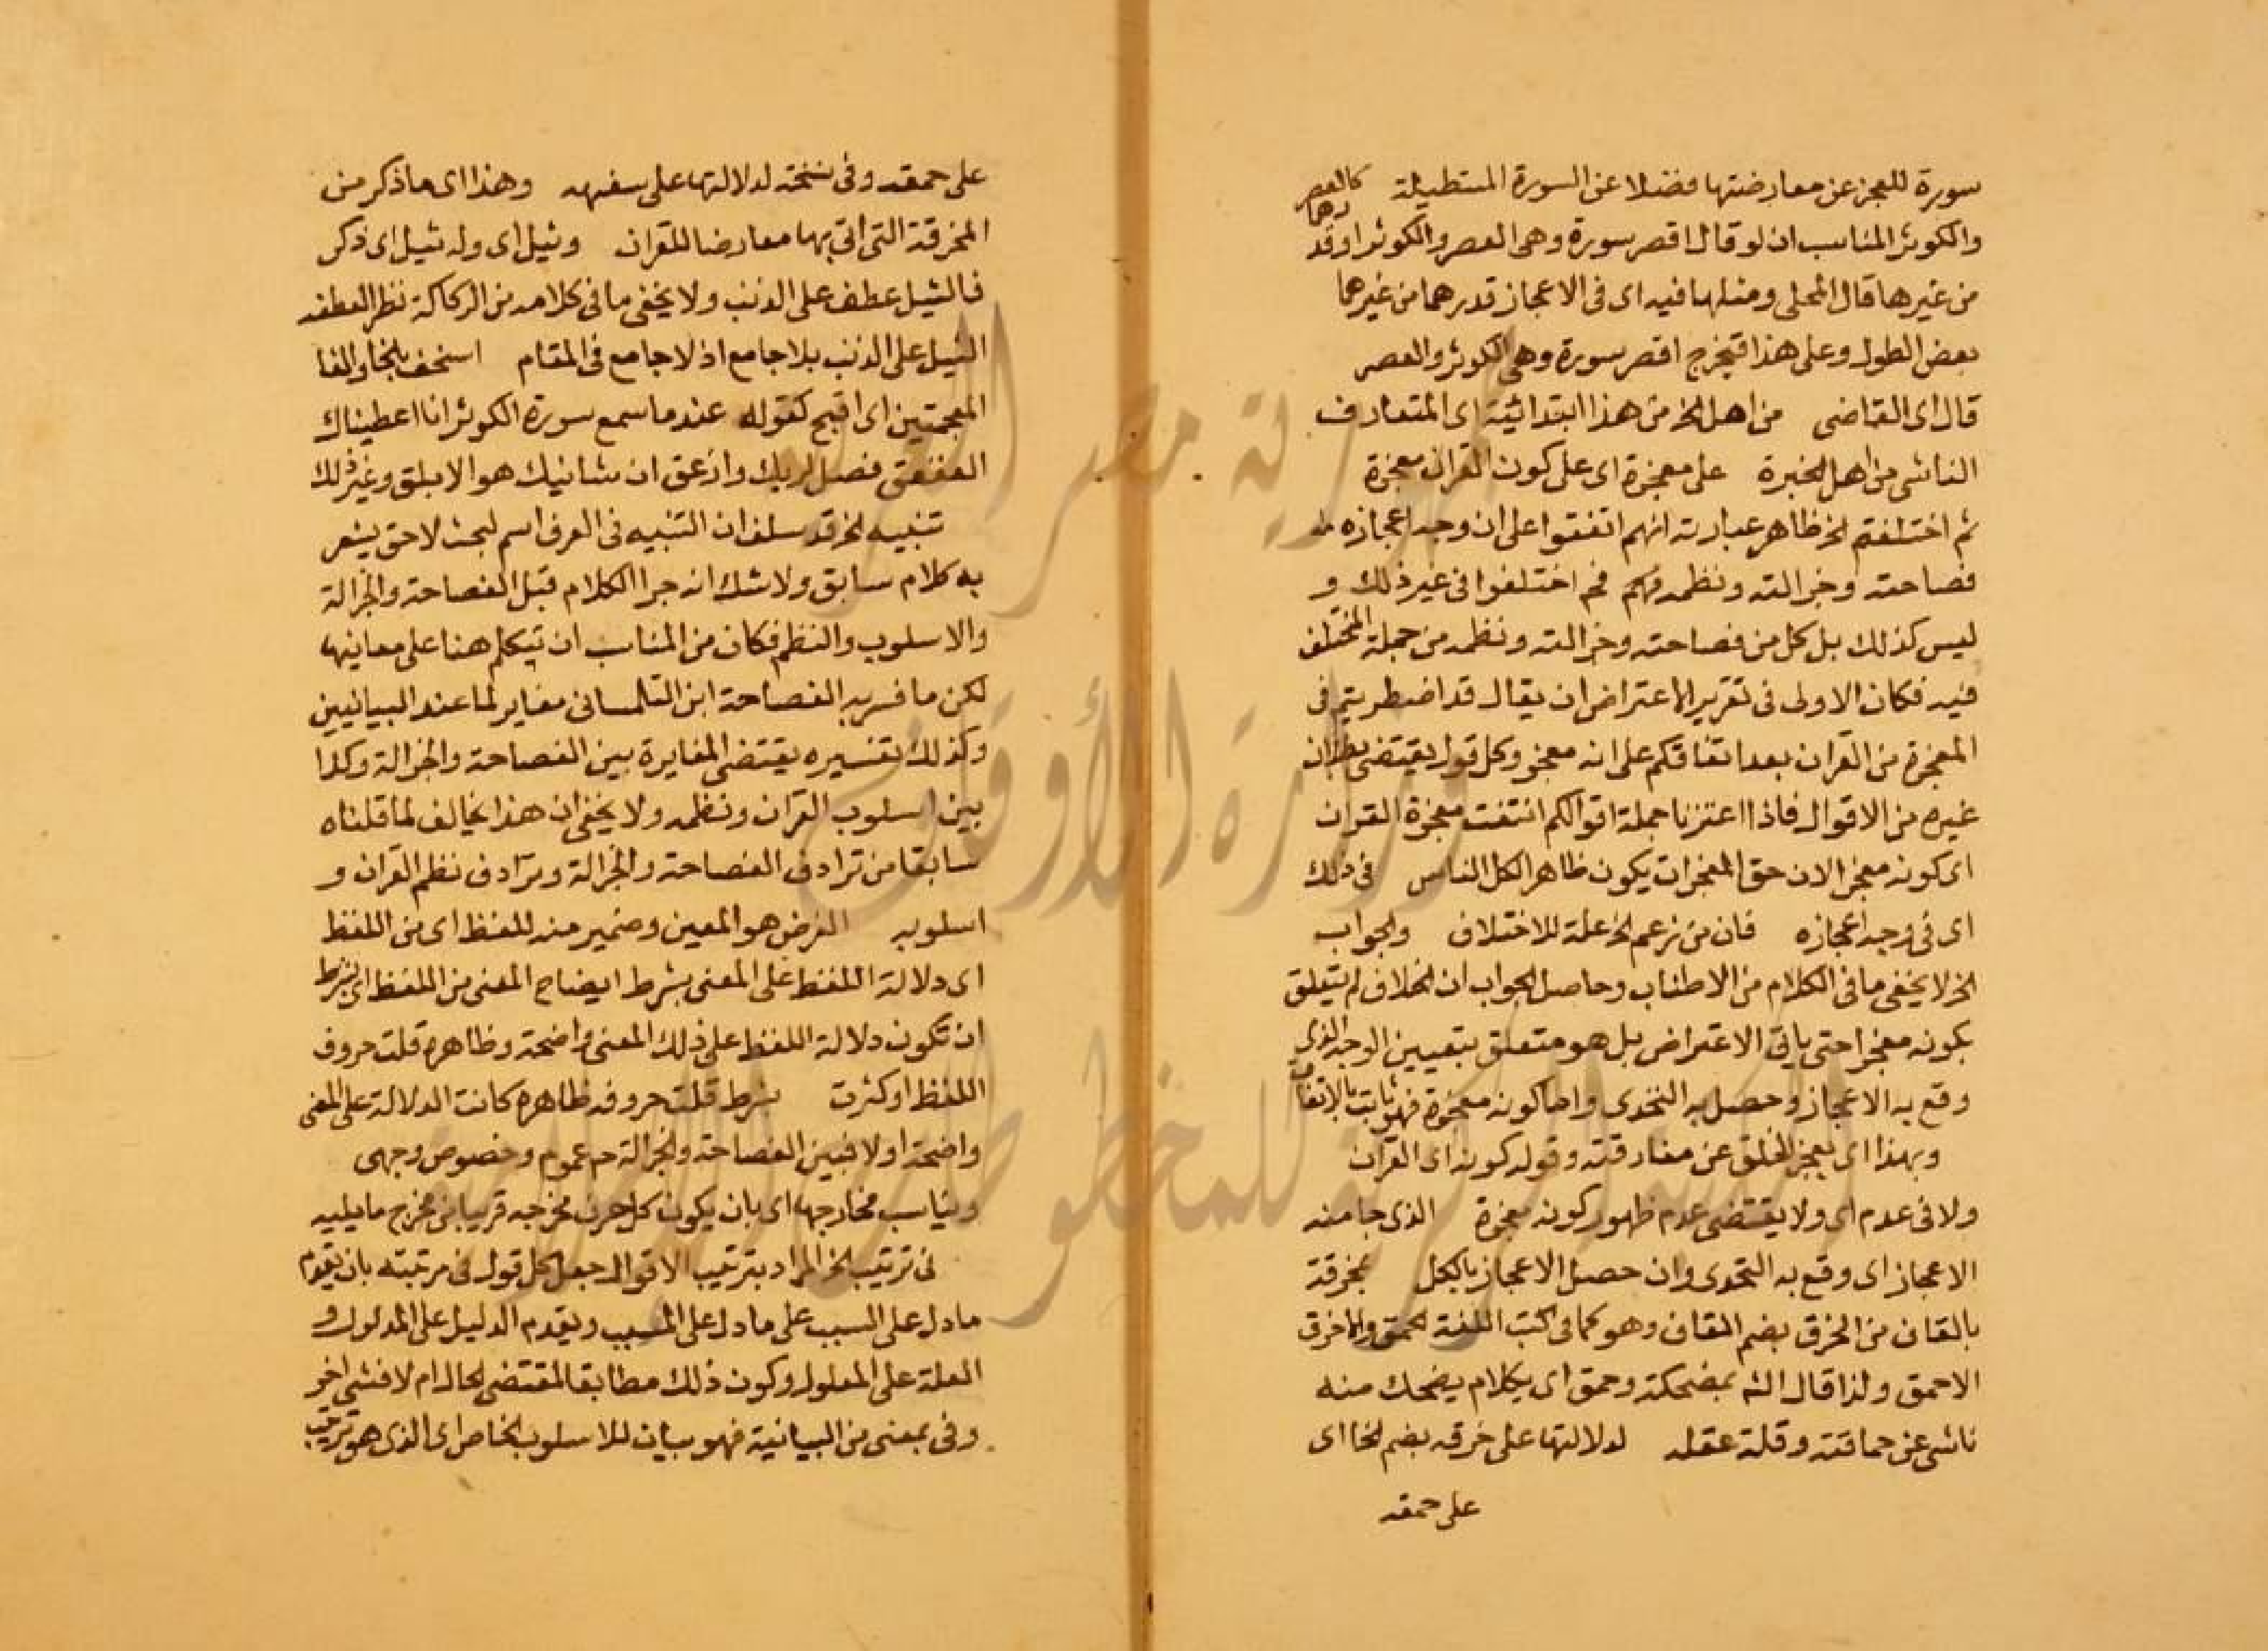 سورة للعجز عن معارضتها فضلا عن السورة المستطيلة كالعصر
والكوثر المناسب ان لو قال اقصر سورة وهى العصر والكوثر او قدرهما
من غيرها قال المحلى ومثلها فيه اى فى الاعجاز قدرهما من غيرهما
بعض الطول وعلى هذا فيخرج اقصر سورة وهى الكوثر والعصر
قال اى القاضى من اهل الخ من هذا ابتدائية اى المتعارف
الناشى من اهل الخبرة على معجزة اى على كون القران معجزة
ثم اختلفتم الخ ظاهر عبارته انهم اتفقوا على ان وجه اعجازه
فصاحته وجزالته ونظمه اختلفوا فى غير ذلك و
ليس كذلك بل كل من فصاحته وجزالته ونظمه من جملة المختلف
فيه فكان الاولى فى تقرير الاعتراض ان يقال قد اضطربتم فى
المعجزة من القران بعد اتفاقكم على انه معجز وكل قول يقتضى بطلان
غيره من الاقوال فاذا اعتبرنا جملة اقوالكم انتفت معجزة القران
اى كونه معجزا لان حق المعجزات يكون ظاهرا لكل الناس فى ذلك
اى فى وجه اعجازه فان من زعم الخ علة للاختلاف والجواب
الخ لا يخفى ما فى الكلام من الاطناب وحاصل الجواب ان الخلاف لم يتعلق
بكونه معجزا حتى ياتى الاعتراض بل هو متعلق بتعيين الوجه الذى
وقع به الاعجاز وحصل به التحدى واما كونه معجزة فهو ثابت بالاتفاق
وبهذا اى بعجز الخلق عن وقوله كونه اى القران
ولا فى عدم اى ولا يقتضى عدم ظهور كونه معجزة الذى جا منه
الاعجاز اى وقع به التحدى وان حصل الاعجاز بالكل بمخرقة
بالقاف من الخرق بضم القاف وهو كما فى كتب اللغة الحمق والاخرق
الاحمق ولذا قال الش بمضحكة وحمق اى بكلام يضحك منه
ناشى عن حماقته وقلة عقله لدلالتها على خرقه بضم الخا اى
على حمقه
على حمقه وفى نسخة لدلالتها على سفهه وهذا اى ما ذكر من
المخرقة التى اتى بها معارضا للقران وثيل اى وله ثيل اى ذكر
فالثيل عطف على الذنب ولا يخفى ما فى كلامه من الركاكة نظرا لعطفه
الثيل على الذنب بلا جامع اذ لا جامع فى المقام اسخف بالخا والفا
المعجمتين اى اقبح كقوله عند ما سمع سورة الكوثر انا اعطيناك
العقعق فصل لربك وازعق ان شانيك هو الابلق وغير ذلك
تنبيه الخ قد سلف ان التنبيه فى العرف اسم لبحث لاحق يشعر
به كلام سابق ولا شك انه جرا الكلام قبل الفصاحة والجزالة
والاسلوب والنظم فكان من المناسب ان يتكلم هنا على معانيها
لكن ما فسر به الفصاحة ابن التلمسانى مغاير لما عند البيانيين
وكذلك تفسيره يقتضى المغايرة بين الفصاحة والجزالة وكذا
بين اسلوب القران ونظمه ولا يخفى ان هذا يخالف لما قلناه
سابقا من ترادف الفصاحة والجزالة وترادف نظم القران و
اسلوبه الغرض هو المعين وضمير منه للفظ اى من اللفظ
اى دلالة اللفظ على المعنى بشرط ايضاح المعنى من اللفظ اى بشرط
ان تكون دلالة اللفظ على ذلك المعنى واضحة وظاهرة قلت حروف
اللفظ او كثرت بشرط قلت حروفه ظاهره كانت الدلالة على المعنى
واضحة اولا فبين الفصاحة والجزالة ح عموم وخصوص وجهى
وتناسب مخارجها اى بان يكون كل حرف مخرجه قريبا من مخرج ما يليه
فى ترتيب الخ المراد بترتيب الاقوال جعل كل قول فى مرتبته بان يقدم
ما دل على السبب على ما دل على المسبب ويقدم الدليل على المدلول و
العلة على المعلول وكون ذلك مطابقا لمقتضى الحال ام لا فشى اخر
وفى بمعنى من البيانية فهو بيان للاسلوب الخاص اى الذى هو ترتيب